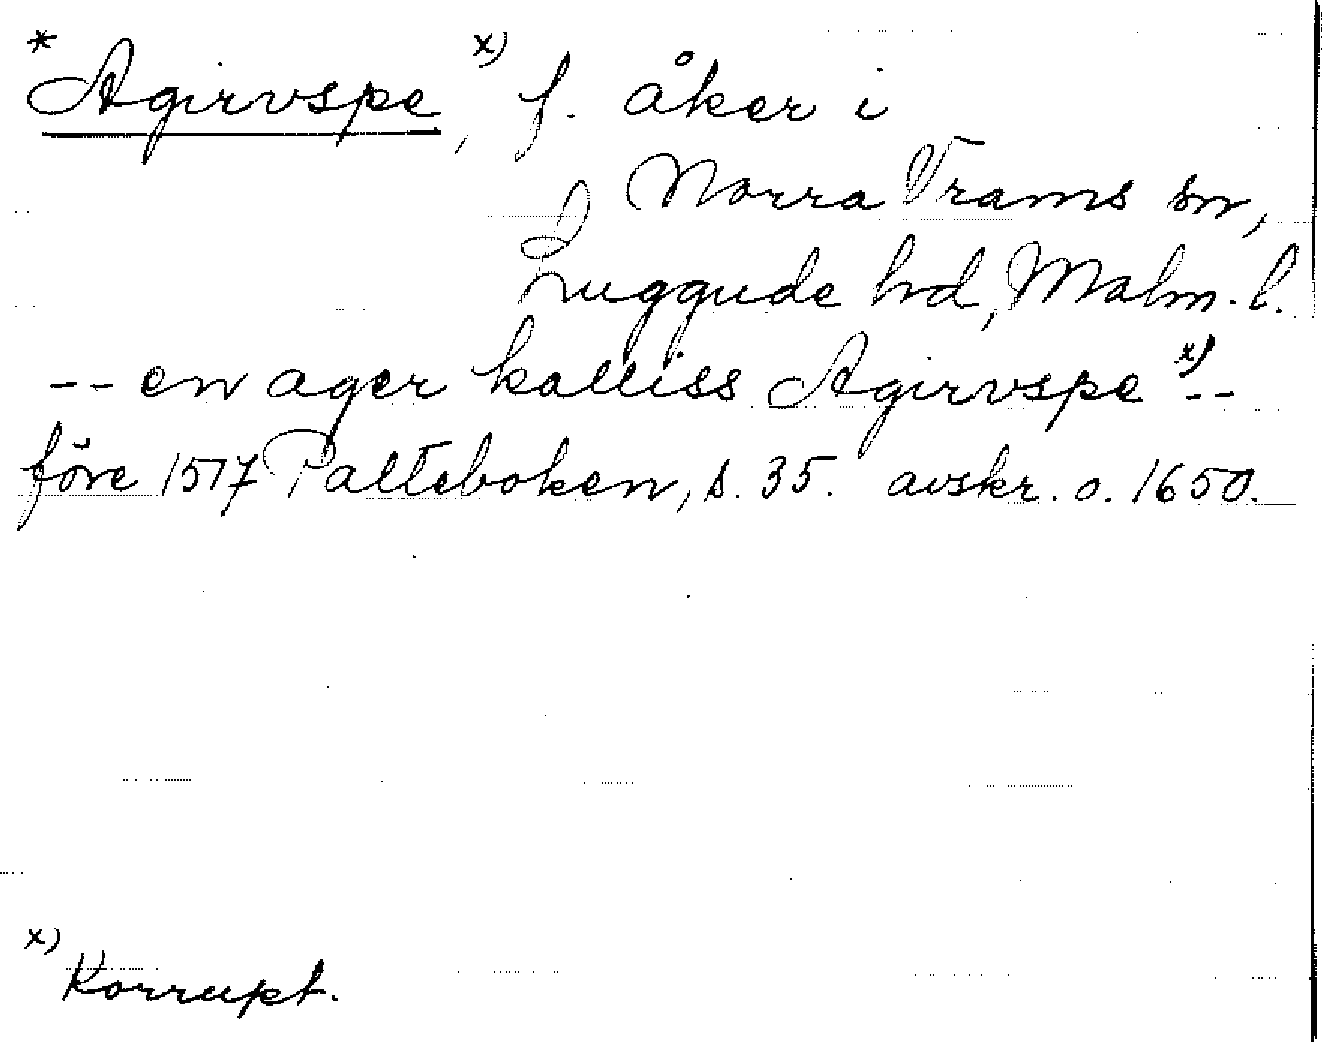 * Agirvspe, x) f. åker i
Norra Vrams sn,
Luggude hd, Malm. l.
-- en ager kalliss Agirvspe x) --
före 1517 Palteboken, s. 35. avskr. o. 1650.
x) Korrupt.